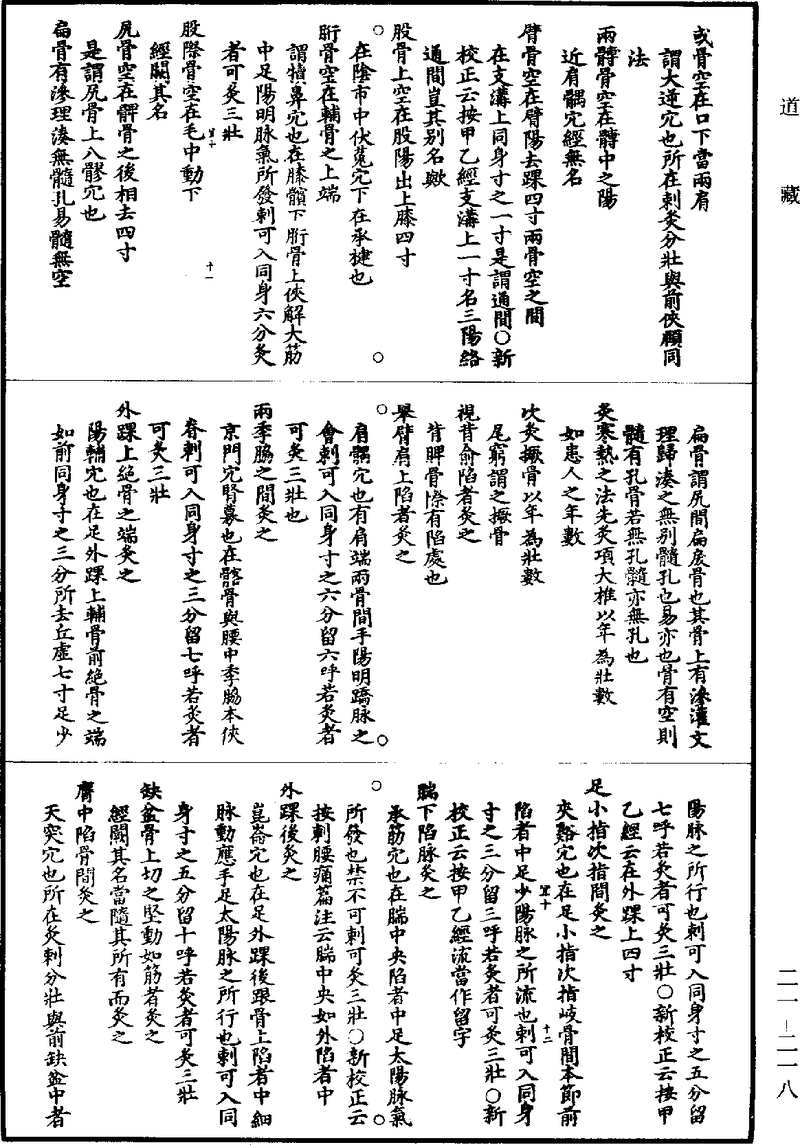 道藏
或骨空在口下當兩肩
謂大迎穴也所在刺灸分壯與前俠頤同
法
兩髆骨空在髆中之陽
近肩髃穴經無名
臂骨空在臂陽去踝四寸兩骨空之間
在支溝上同身寸之一寸是謂通間○新
校正云按甲乙經支溝上一寸名三陽絡
通間豈其別名歟
股骨上空在股陽出上膝四寸
在陰市中伏菟穴下在承楗也
䯒骨空在輔骨之上端
謂犢鼻穴也在膝髕下䯒骨上俠解大筋
中足陽明脉氣所發刺可入同身六分灸
者可灸三壯
股際骨空在毛中動下
經闕其名
尻骨空在髀骨之後相去四寸
是謂尻骨上八髎穴也
扁骨有滲理湊無髓孔易髓無空
十一
扁骨謂尻間扁戾骨也其骨上有滲灌文
理歸湊之無別髓孔也易亦也骨有空則
髓有孔骨若無孔髓亦無孔也
灸寒熱之法先灸項大椎以年為壯數
如患人之年數
次灸撅骨以年為壯數
尾窮謂之撅骨
視背俞陷者灸之
背胛骨際有陷處也
舉臂肩上陷者灸之
肩髃穴也有肩端兩骨間手陽明蹻脉之
會刺可入同身寸之六分留六呼若灸者
可灸三壯也
兩季脇之間灸之
京門穴腎募也在髂骨與腰中季脇本俠
脊刺可入同身寸之三分留七呼若灸者
可灸三壯
外踝上絕骨之端灸之
陽輔穴也在足外踝上輔骨前絕骨之端
如前同身寸之三分所去丘虛七寸足少
陽脉之所行也刺可入同身寸之五分留
七呼若灸者可灸三壯○新校正云按甲
乙經云在外踝上四寸
足小指次指間灸之
夾谿穴也在足小指次指岐骨間本節前
陷者中足少陽脉之所流也刺可入同身
寸之三分留三呼若灸者可灸三壯○新
校正云按甲乙經流當作留字
腨下陷脉灸之
承筋穴也在腨中央陷者中足太陽脉氣
所發也禁不可刺可灸三壯○新校正云
按刺腰痛篇注云腨中央如外陷者中
外踝後灸之
崑崙穴也在足外踝後跟骨上陷者中細
脉動應手足太陽脉之所行也刺可入同
身寸之五分留十呼若灸者可灸三壯
缺盆骨上切之堅動如筋者灸之
經闕其名當隨其所有而灸之
膺中陷骨間灸之
天突穴也所在灸刺分壯與前缺盆中者
十二
二一－二一八